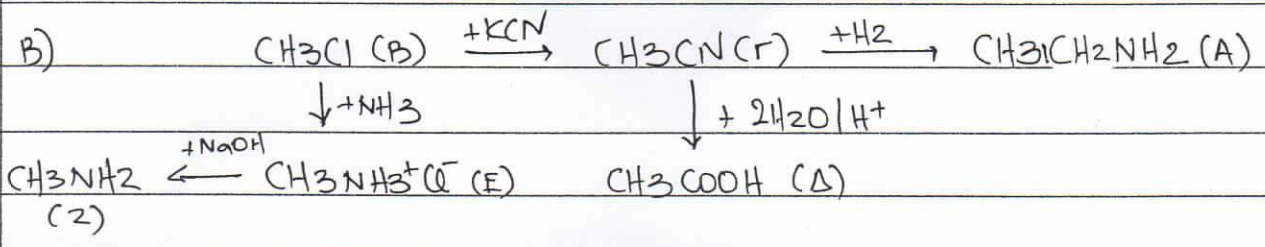 B) CH3Cl (B) +KCN → CH3CN (Γ) +H2 → CH3CH2NH2 (A)
↓ +NH3 ↓ + 2H2O/H+
CH3NH2 ← +NaOH CH3NH3+Cl- (E) CH3COOH (Δ)
(Z)